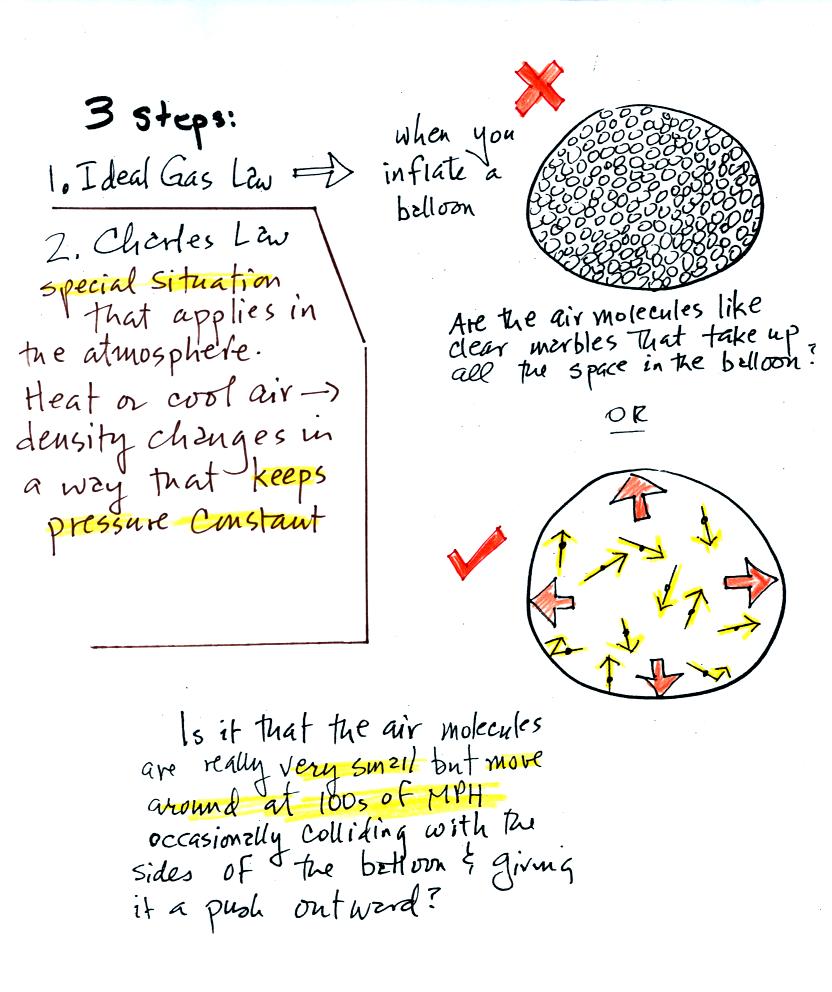 3 steps:
1. Ideal Gas Law ⇒
when you
inflate a
balloon
2. Charles Law
special situation
that applies in
the atmosphere.
Heat or cool air →
density changes in
a way that keeps
pressure constant
Are the air molecules like
clear marbles that take up
all the space in the balloon?
OR
Is it that the air molecules
are really very small but move
around at 100s of MPH
occasionally colliding with the
sides of the balloon & giving
it a push outward?